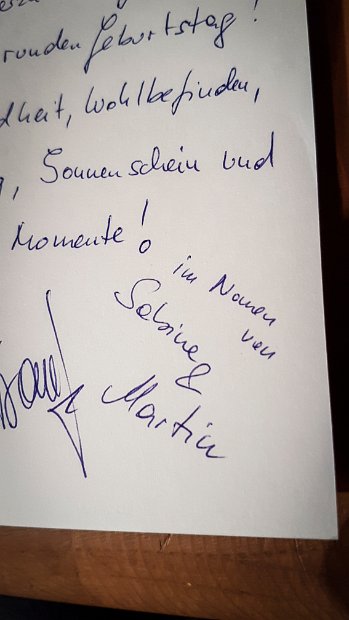 runden Geburtstag!
dheit, Wohlbefinden,
, Sonnenschein und
Momente!
im Namen
von
Sabine &
Martin